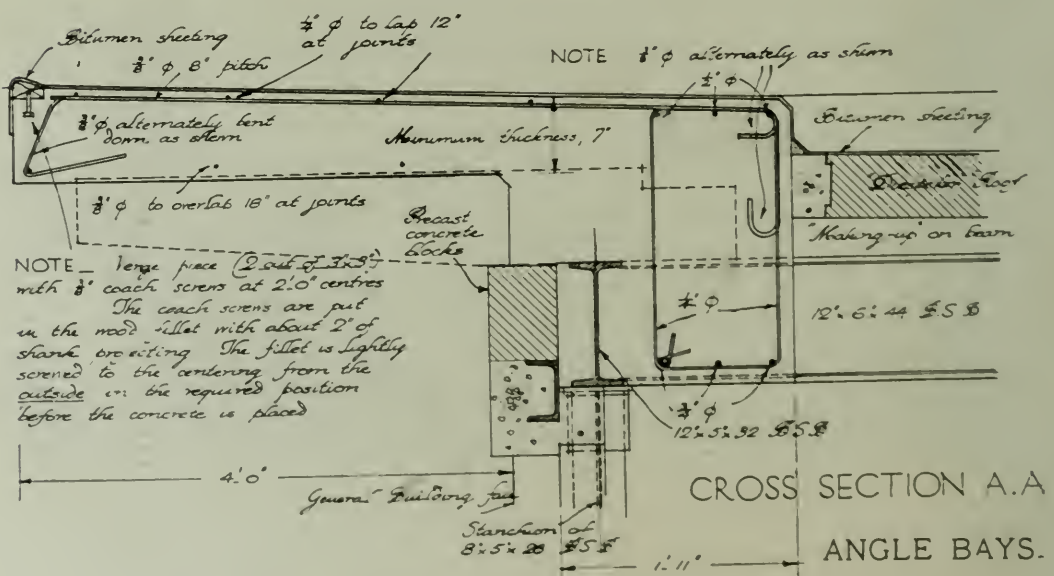 Bitumen sheeting
⅜" φ 8" pitch
¼" φ to lap 12"
at joints
NOTE
⅜" φ alternately as shewn
½" φ
⅜" φ alternately bent
down as shewn
Minimum thickness, 7"
Bitumen sheeting
⅜" φ to overlap 18" at joints
Precast
concrete
blocks
"Making-up" on beam
NOTE_ Verge piece (2 out of 3"x3")
with ⅜" coach screws at 2'0" centres
The coach screws are put
in the wood fillet with about 2" of
shank projecting The fillet is lightly
screwed to the centering from the
outside in the required position
before the concrete is placed
¼" φ
12" x 6" x 44 B S B
¾" φ
12" x 5" x 32 B S B
4'.0"
General Building face
Stanchion of
8" x 5" x 28
1'.11"
CROSS SECTION A.A
ANGLE BAYS.